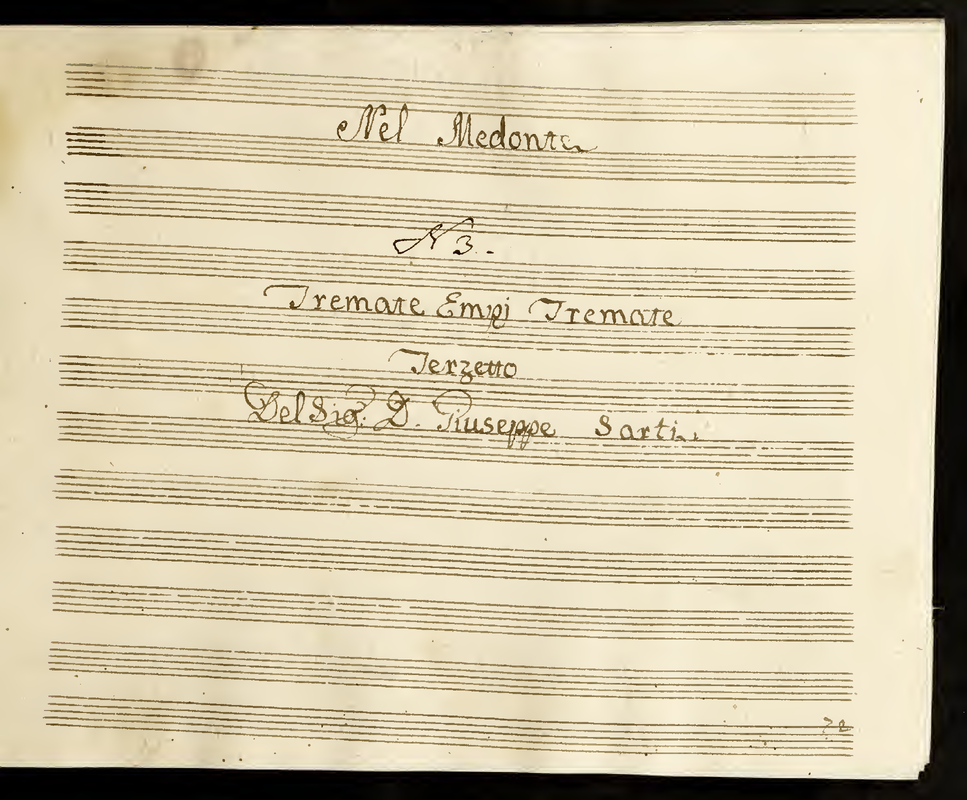 Nel Medonte
N 3.
Tremate Empi Tremate
Terzetto
Del Sig. D. Giuseppe Sarti.